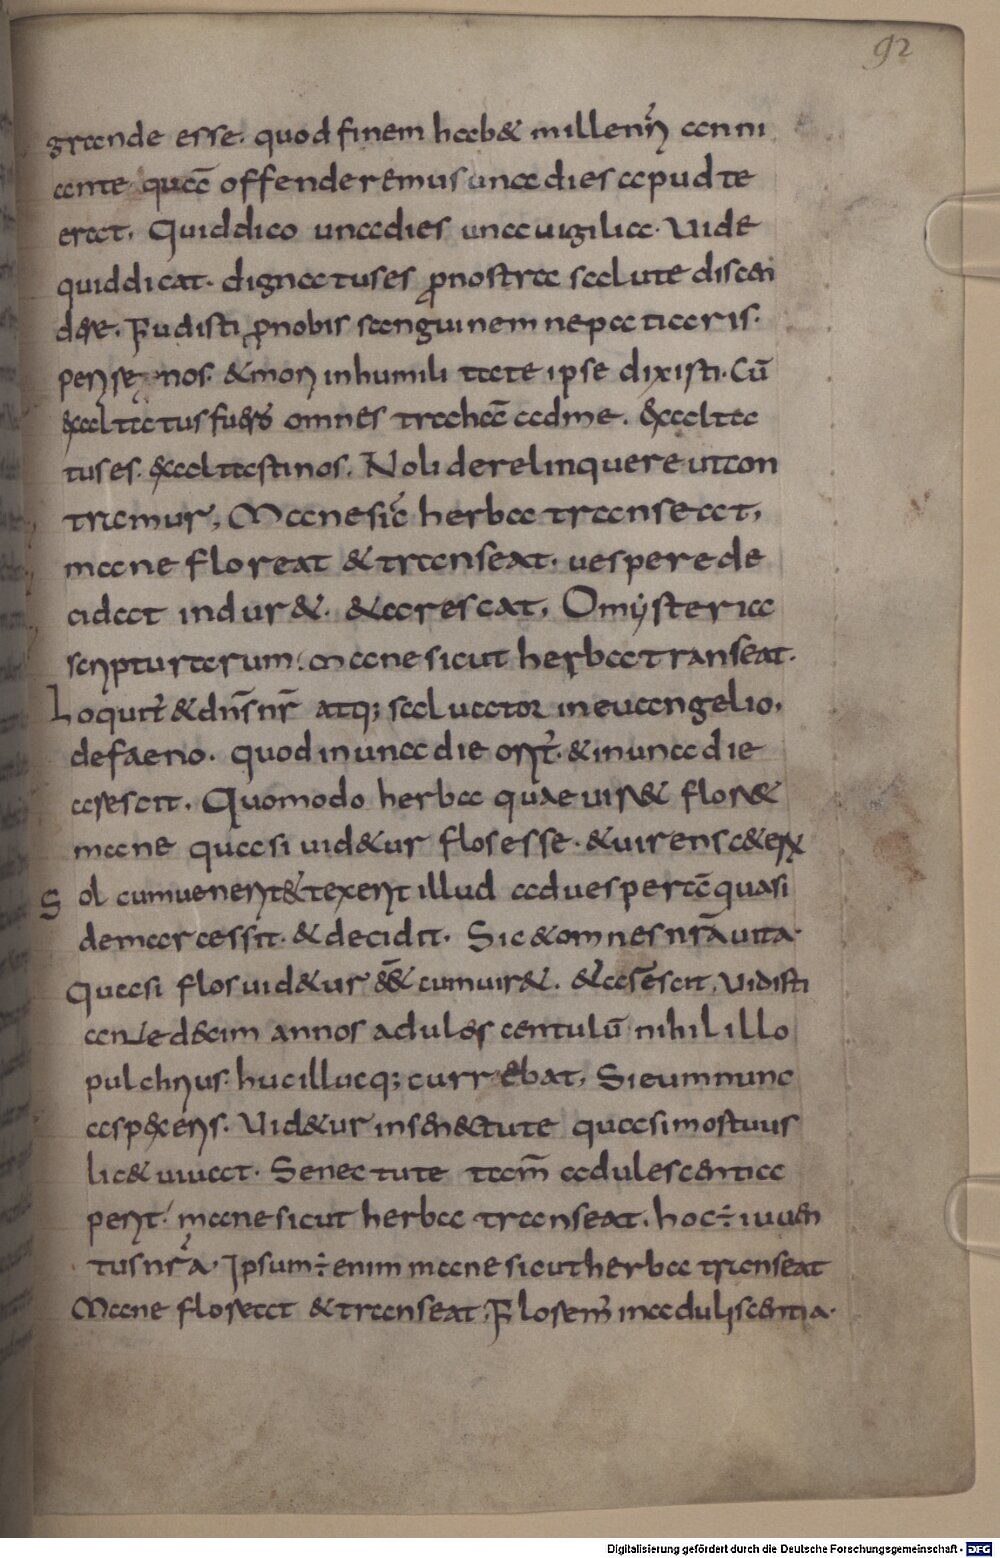 92
grande esse. quod finem hab& milleni anni
ante quā offenderemus una dies apud te
erat. Quid dico una dies una uigilia. Uide
quid dicat. dignatus es pro nostra salute discen
dere. Fudisti pro nobis sanguinem ne patiaris.
 nos. & mori in humilitate ipse dixisti. Cū
exaltatus fuero omnes trahā ad me. exalta
tus es. exaltasti nos. Noli derelinquere ut con
 Mane sic herba transeat,
mane floreat & transeat. uespere de
cidat indur& & arescat, O mysteria
scripturarum. mane sicut herba transeat.
Loquit & dn̄s nr̄ atq; saluator in euangelio,
de faeno. quod in una die orit. & in una die
arescit. Quomodo herba quae uir& flor&
mane quasi uid&ur flos esse. & uirens c&
Sol cum uenerit & texerit illud ad uesperā quasi
demarcessit. & decidit. Sic & omnes nr̄a uita.
Quasi flos uid&ur cum uir&. & arescit. Vidisti
ante decim annos adulescentulū nihil illo
pulchrius. huc illucq; currebat, Si eum nunc
aspexeris. Uid&ur in senectute quasi mortuus
lic& uiuat. Senectute tam̄ adulescentia
perit. mane sicut herba transeat. hoc ÷ iuuen
tus nr̄a. Ipsum ÷ enim mane sicut herba transeat
Mane floreat & transeat. Flos enim in aduliscentia.
Digitalisierung gefördert durch die Deutsche Forschungsgemeinschaft - DFG